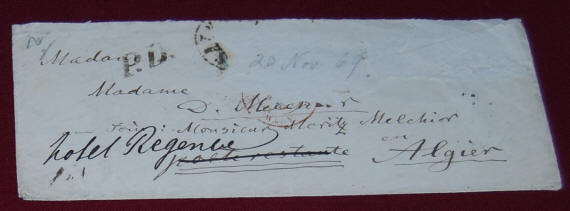 Madame
P.D.
20 Nov 69
Madame
D. Melchior
Monsieur Moritz Melchior
en
hotel Regence
poste restante
Algier